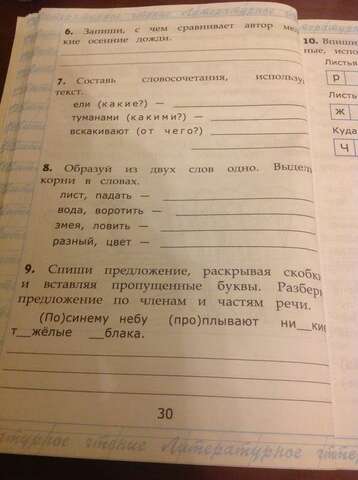 6. Запиши, с чем сравнивает автор
кие осенние дожди.
7. Составь словосочетания,
текст.
ели (какие?) —
туманами (какими?) —
вскакивают (от чего?)
8. Образуй из двух слов одно.
корни в словах.
лист, падать —
вода, воротить —
змея, ловить —
разный, цвет —
9. Спиши предложение, раскрывая
и вставляя пропущенные буквы.
предложение по членам и частям речи.
(По)синему небу (про)плывают ни__кие
т__жёлые __блака.
30
Литературное
чтение Литературное
10.
Листья
р
ж
Куда
ч